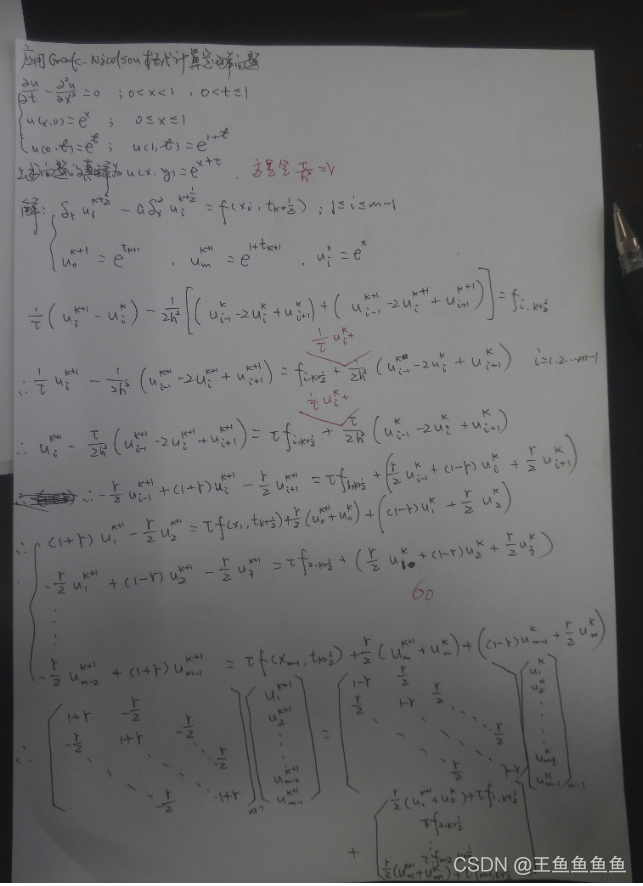 应用Crank-Nicolson格式计算定解问题
∂u/∂t - ∂²u/∂x² = 0 ; 0<x<1 , 0<t≤1
u(x,0)=e^x ; 0≤x≤1
u(0,t)=e^t ; u(1,t)=e^{1+t}
上述问题的真解为u(x,y)=e^{x+t} . τ/h²=r
解: δ_t u_i^{k+1/2} - aδ_x² u_i^{k+1/2} = f(x_i, t_{k+1/2}) ; 1≤i≤m-1
u_0^{k+1} = e^{t_{k+1}} , u_m^{k+1} = e^{1+t_{k+1}} , u_i^0 = e^x
1/τ (u_i^{k+1} - u_i^k) - 1/2h² [(u_{i-1}^k - 2u_i^k + u_{i+1}^k) + (u_{i-1}^{k+1} - 2u_i^{k+1} + u_{i+1}^{k+1})] = f_{i,k+1/2}
1/τ u_i^k +
∴ 1/τ u_i^{k+1} - 1/2h² (u_{i-1}^{k+1} - 2u_i^{k+1} + u_{i+1}^{k+1}) = f_{i,k+1/2} + 1/2h² (u_{i-1}^k - 2u_i^k + u_{i+1}^k) i=1,2...m-1
1/τ u_i^k +
∴ u_i^{k+1} - τ/2h² (u_{i-1}^{k+1} - 2u_i^{k+1} + u_{i+1}^{k+1}) = τf_{i,k+1/2} + τ/2h² (u_{i-1}^k - 2u_i^k + u_{i+1}^k)
∴ -r/2 u_{i-1}^{k+1} + (1+r)u_i^{k+1} - r/2 u_{i+1}^{k+1} = τf_{i,k+1/2} + (r/2 u_{i-1}^k + (1-r)u_i^k + r/2 u_{i+1}^k)
∴ (1+r)u_1^{k+1} - r/2 u_2^{k+1} = τf(x_1, t_{k+1/2}) + r/2 (u_0^{k+1} + u_0^k) + ((1-r)u_1^k + r/2 u_2^k)
-r/2 u_1^{k+1} + (1-r)u_2^{k+1} - r/2 u_3^{k+1} = τf_{2,k+1/2} + (r/2 u_1^k + (1-r)u_2^k + r/2 u_3^k)
60
-r/2 u_{m-2}^{k+1} + (1+r)u_{m-1}^{k+1} = τf(x_{m-1}, t_{k+1/2}) + r/2 (u_m^{k+1} + u_m^k) + ((1-r)u_{m-1}^k + r/2 u_m^k)
1+r -r/2 u_1^{k+1} 1-r r/2 u_1^k
-r/2 1+r -r/2 u_2^{k+1} = r/2 1-r r/2 u_2^k
-r/2 r/2
∴ -r/2 1+r u_{m-1}^{k+1} r/2 1-r u_{m-1}^k
r/2 (u_0^{k+1} + u_0^k) + τf_{1,k+1/2}
τf_{2,k+1/2}
+
CSDN @王鱼鱼鱼鱼